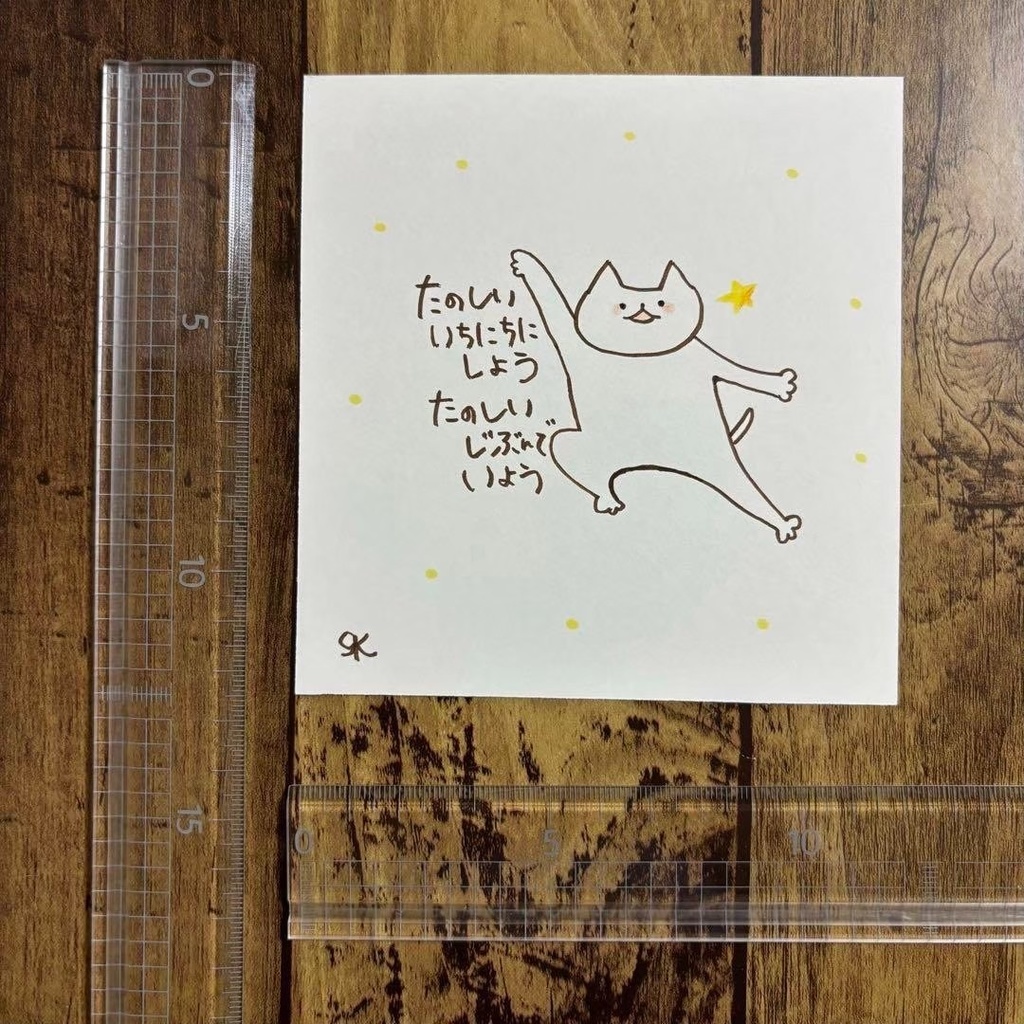 たのしい
いちにちに
しよう
たのしい
じぶんで
いよう
SK
0
5
10
15
0
5
10